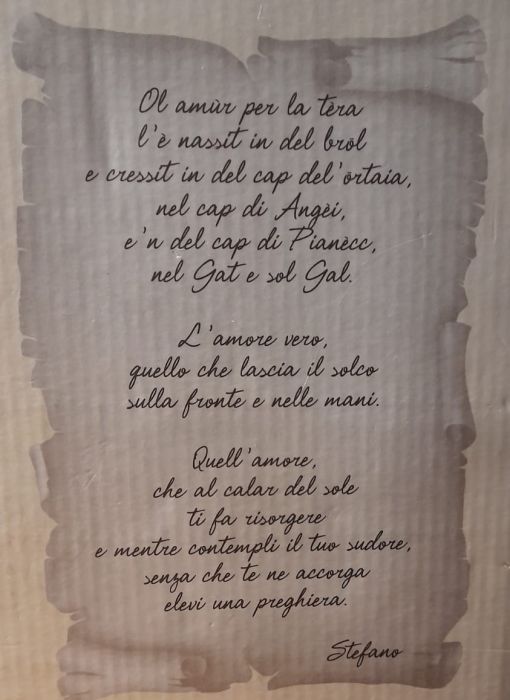 Ol amùr per la tèra
l'è nassit in del bröl
e cressit in del cap del'örtaia,
nel cap di Angèi,
e'n del cap di Pianècc,
nel Gat e sol Gal.
L'amore vero,
quello che lascia il solco
sulla fronte e nelle mani.
Quell'amore,
che al calar del sole
ti fa risorgere
e mentre contempli il tuo sudore,
senza che te ne accorga
elevi una preghiera.
Stefano